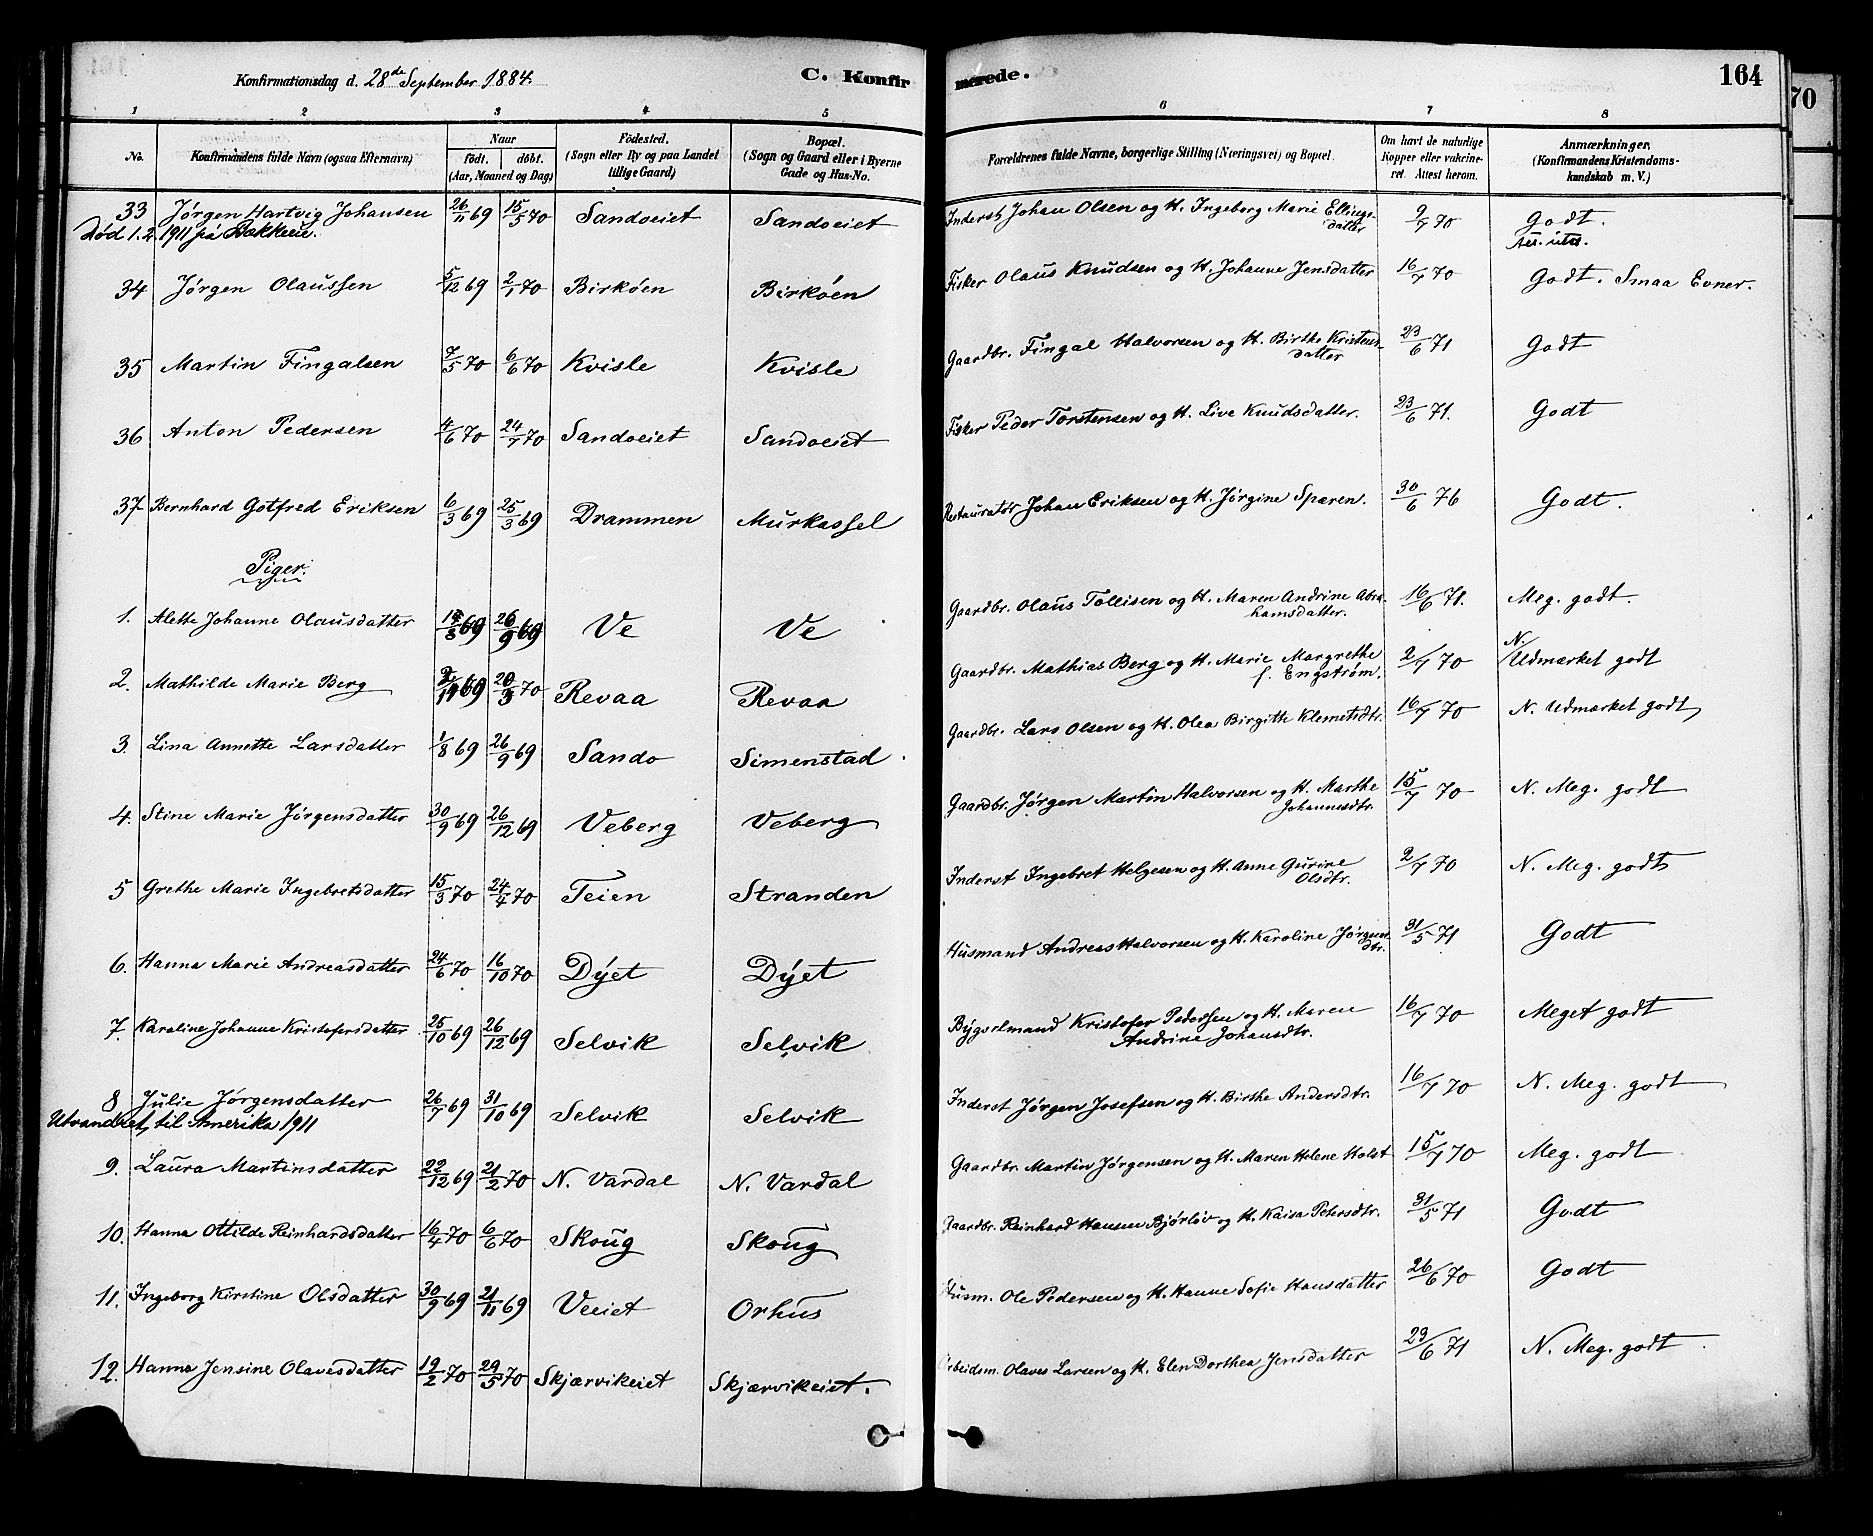 Konfirmationsdag d. 28de September 1884. C. Konfirmerede. 164
70
1 2 3 4 5 6 7 8
No. Konfirmandens fulde Navn (ogsaa Efternavn) Naar født. døbt. (Aar, Maaned og Dag) Födested. (Sogn eller By og paa Landet tillige Gaard) Bopæl. (Sogn og Gaard eller i Byerne Gade og Hus-No. Forældrenes fulde Navne, borgerlige Stilling (Næringsvei) og Bopæl. Om havt de naturlige Kopper eller vakcineret. Attest herom. Anmærkninger. (Konfirmandens Kristendomskundskab m. V.)
33 Jørgen Hartvig Johansen 26/11 69 15/5 70 Sandoeiet Sandoeiet Inderst Johan Olsen og H. Ingeborg Marie Ellingsdatter 9/7 70 Godt.
Død 1.2. 1911 på Bakken. Att. utst.
34 Jørgen Olaussen 5/12 69 2/1 70 Birköen Birköen Fisker Olaus Knudsen og H. Johanne Jensdatter 16/7 70 Godt. Smaa Evner.
35 Martin Fingalsen 7/5 70 6/6 70 Kvisle Kvisle Gaardbr. Fingal Halvorsen og H. Birthe Kristensdatter 23/6 71 Godt
36 Anton Pedersen 4/6 70 24/7 70 Sandoeiet Sandoeiet Fisker Peder Torstensen og H. Live Knudsdatter. 23/6 71. Godt
37 Bernhard Gotfred Eriksen 6/3 69 25/3 69 Drammen Murkassel Restauratör Johan Eriksen og H. Jørgine Sparen. 30/6 76 Godt.
Piger.
1. Alette Johanne Olausdatter 69 26/9 69 Ve Ve Gaardbr. Olaus Tollisen og H. Maren Andrine Abrahamsdatter. 16/6 71. Meg. godt.
2. Mathilde Marie Berg 69 20/3 70 Revaa Revaa Gaardbr. Mathias Berg og H. Marie Margrethe f. Engstrøm. 2/7 70 N. Udmærket godt
3. Lina Annette Larsdatter 1/8 69 26/9 69 Sando Simenstad Gaardbr. Lars Olsen og H. Olea Birgitte Klemetsdtr. 16/7 70 N. Udmærket godt
4. Stine Marie Jørgensdatter 30/9 69 26/12 69 Veberg Veberg Gaardbr. Jørgen Martin Halvorsen og H. Marthe Johannesdtr. 15/7 70 N. Meg. godt
5 Grethe Marie Ingebretsdatter 15/3 70 24/4 70 Teien Stranden Inderst Ingebret Helgesen og H. Anne Gurine Olsdtr. 2/7 70 N. Meg. godt
6. Hanna Marie Andreasdatter 24/6 70 16/10 70 Dÿet Dÿet Husmand Andreas Halvorsen og H. Karoline Jørgensdtr. 31/5 71 Godt
7. Karoline Johanne Kristofersdatter 25/10 69 26/12 69 Selvik Selvik Bÿgselmand Kristofer Pederssen og H. Maren Andrine Johansdtr. 16/7 70 Meget godt
8 Julie Jørgensdatter 26/7 69 31/10 69 Selvik Selvik Inderst Jørgen Josefsen og H. Birthe Andersdtr. 16/7 70 N. Meg. godt
Utvandret til Amerika 1911
9. Laura Martinsdatter 22/12 69 21/2 70 N. Vardal N. Vardal Gaardbr. Martin Jørgensen og H. Maren Helene Holst 15/7 70 Meg. godt
10. Hanna Ottilde Reinhardsdatter 16/4 70 6/6 70 Skoug Skoug Gaardbr. Reinhard Hansen Bjørløv og H. Kaisa Petersdtr. 31/5 71 Godt
11. Ingeborg Kirstine Olsdatter 30/9 69 21/11 69 Veeiet Orhus Husm. Ole Pedersen og H. Hanne Sofie Hansdatter 26/6 70 Godt
12. Hanna Jensine Olavesdatter 19/2 70 29/5 70 Skjærvikeiet Skjærvikeiet. Arbeidsm. Olaves Larsen og H. Elen Dorthea Jensdatter 29/6 71 N. Meg. godt